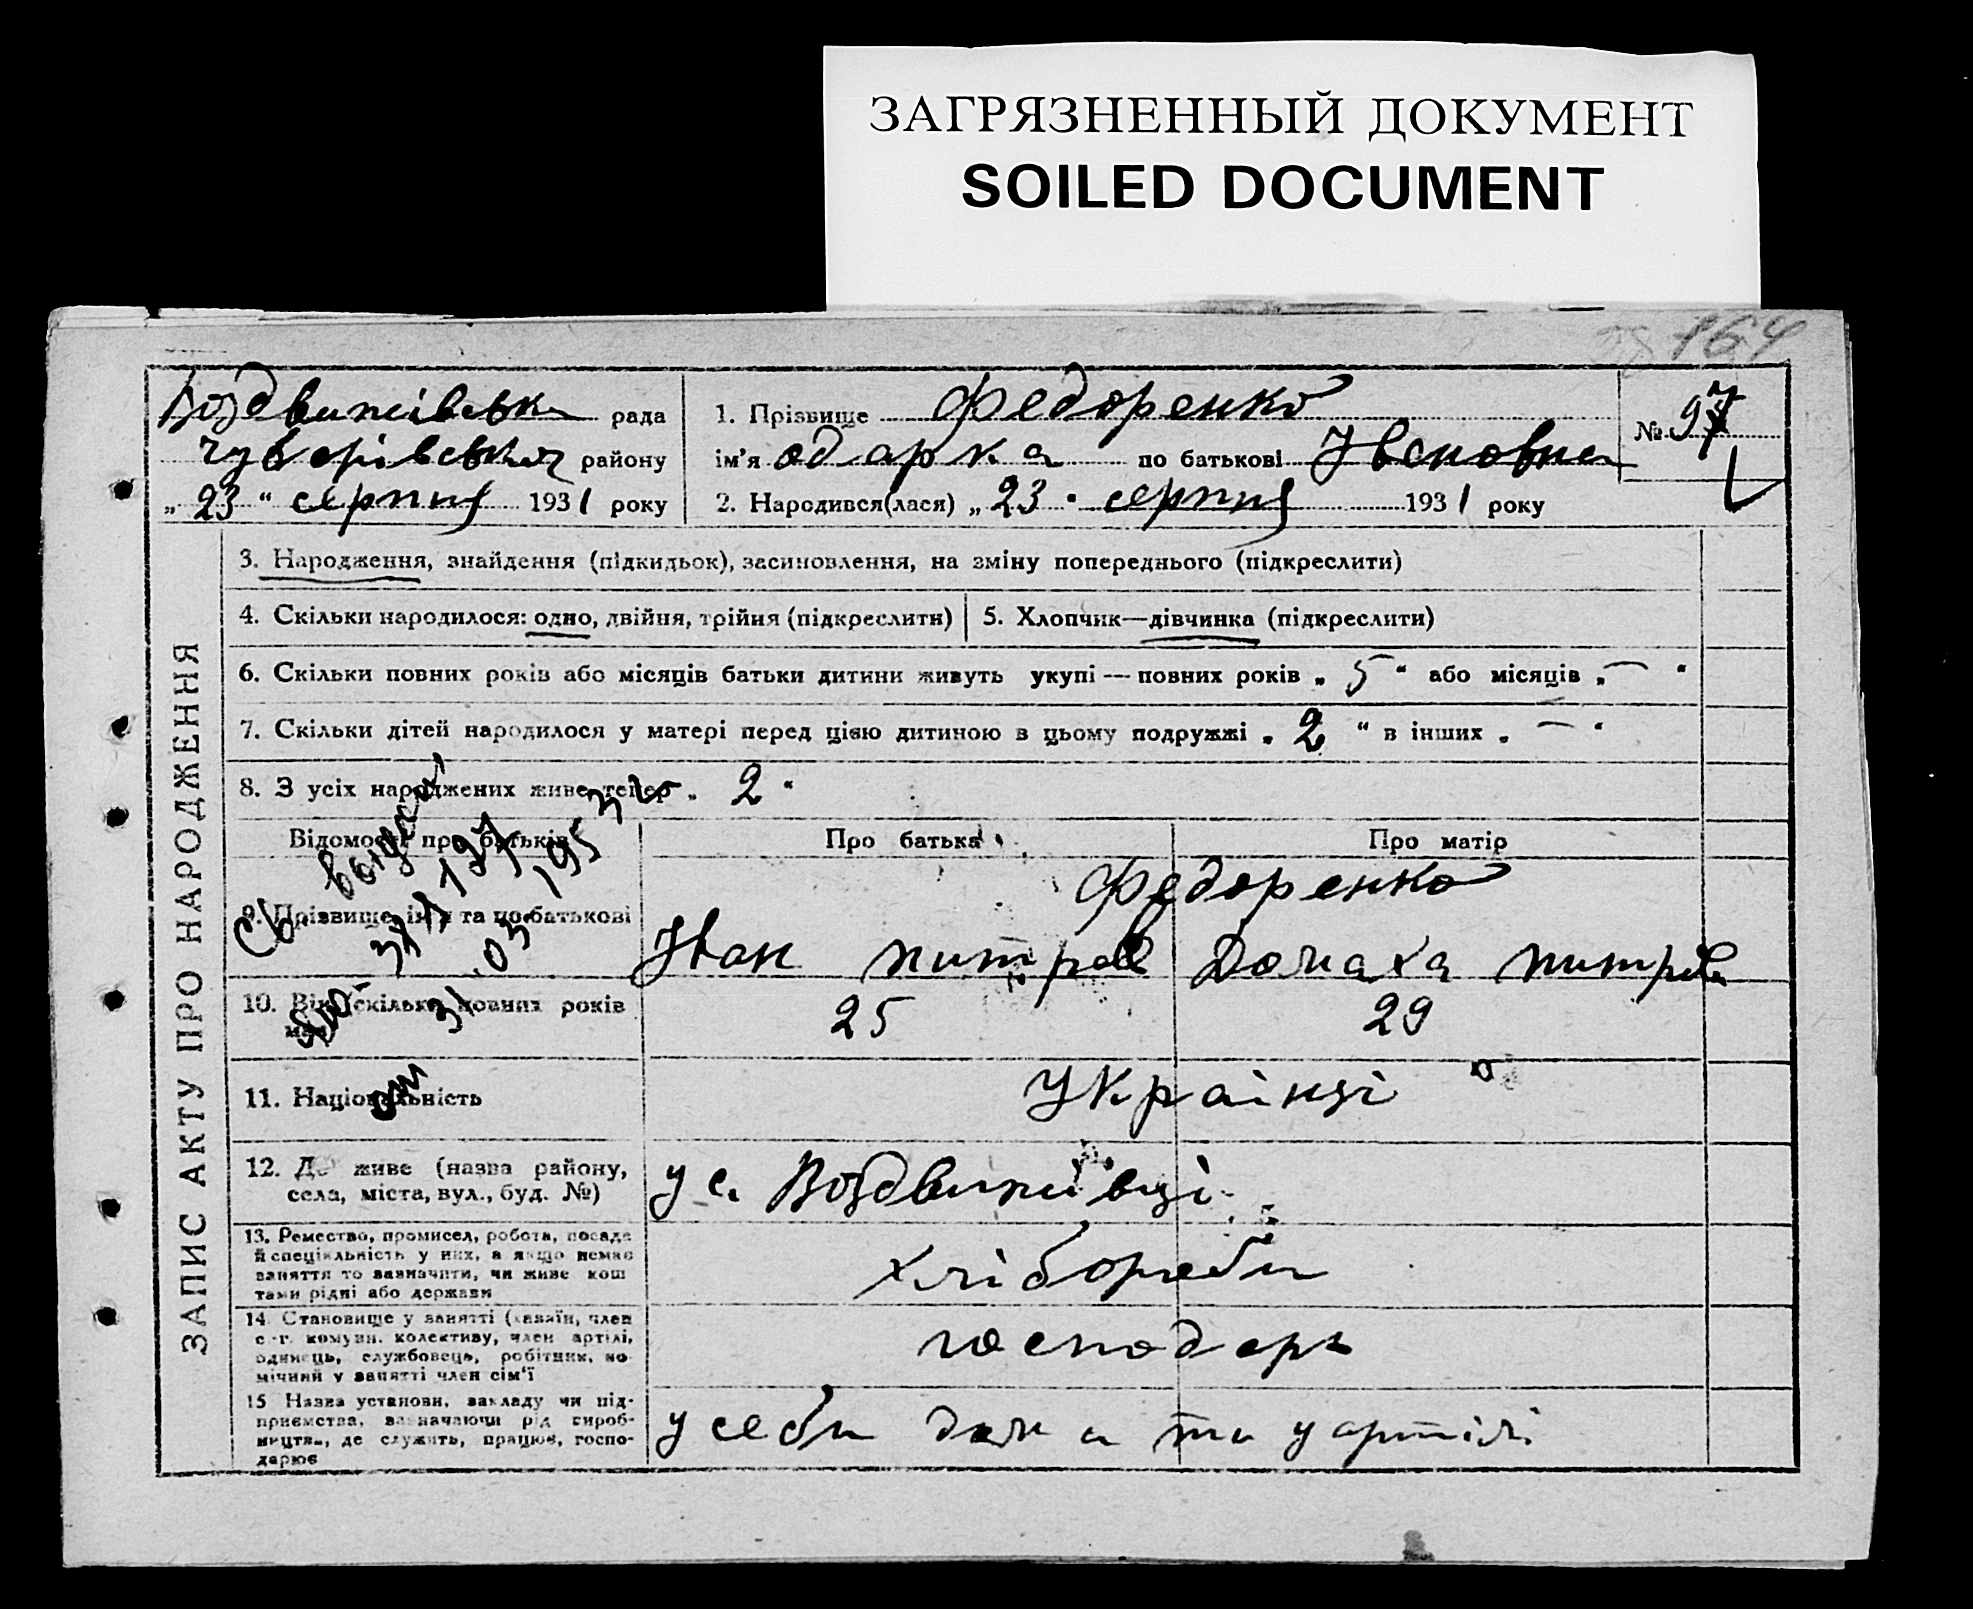 ЗАГРЯЗНЕННЫЙ ДОКУМЕНТ
SOILED DOCUMENT
164
Воздвижівська рада
Чубарівська району
„ 23 “ серпня 1931 року
1. Прізвище Федоренко
ім'я Одарка по батькові Івановна
2. Народився(лася) „ 23 “ серпня 1931 року
№ 97
ЗАПИС АКТУ ПРО НАРОДЖЕННЯ
3. Народження, знайдення (підкидьок), засиновлення, на зміну попереднього (підкреслити)
4. Скільки народилося: одно, двійня, трійня (підкреслити)
5. Хлопчик—дівчинка (підкреслити)
6. Скільки повних років або місяців батьки дитини живуть укупі — повних років „ 5 “ або місяців „ — “
7. Скільки дітей народилося у матері перед цією дитиною в цьому подружжі „ 2 “ в інших „ — “
8. З усіх народжених живе тепер „ 2 “
Відомості про батьків
Про батька
Про матір
9. Прізвище, ім'я та по батькові
Федоренко
Іван
Домаха
10. Вік (скільки повних років
має)
25
29
11. Національність
Українці
12. Де живе (назва району,
села, міста, вул., буд. №)
у с. Воздвижівці
13. Ремество, промисел, робота, посада
й спеціяльність у них, а якщо немає
заняття то зазначити, чи живе кош
тами рідні або держави
хлібороби
14. Становище у занятті (хазяїн, член
с.-г. комуни, колективу, член артілі,
одинець, службовець, робітник, по
мічний у занятті член сім'ї
господарь
15 Назва установи, закладу чи під-
приємства, зазначаючи рід вироб-
ництва, де служить, працює, госпо-
дарює
у себи дома та у артілі